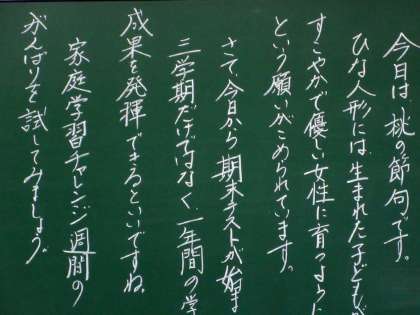 今日は、桃の節句です。
ひな人形には、生まれた子どもが
すこやかで優しい女性に育つように
という願いがこめられています。
さて、今日から期末テストが始ま
三学期だけではなく、一年間の学
成果を発揮できるといいですね。
家庭学習チャレンジ週間の
がんばりを試してみましょう。